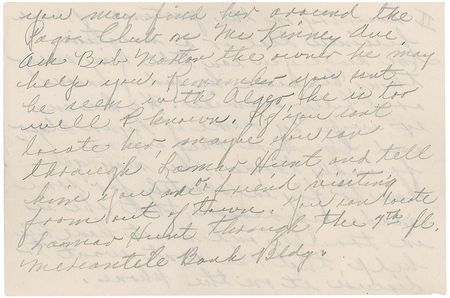 you may find her around the
Pago Club on McKinney Ave
Ask Bob Norton the owner he may
help you. Remember you cant
be seen with Alger he is too
well known. If you cant
locate her, maybe you can
through Lamar Hunt and tell
him you are friend visiting
from out of town. You can locate
Lamar Hunt through the 7th fl.
Mercantile Bank Bldg.